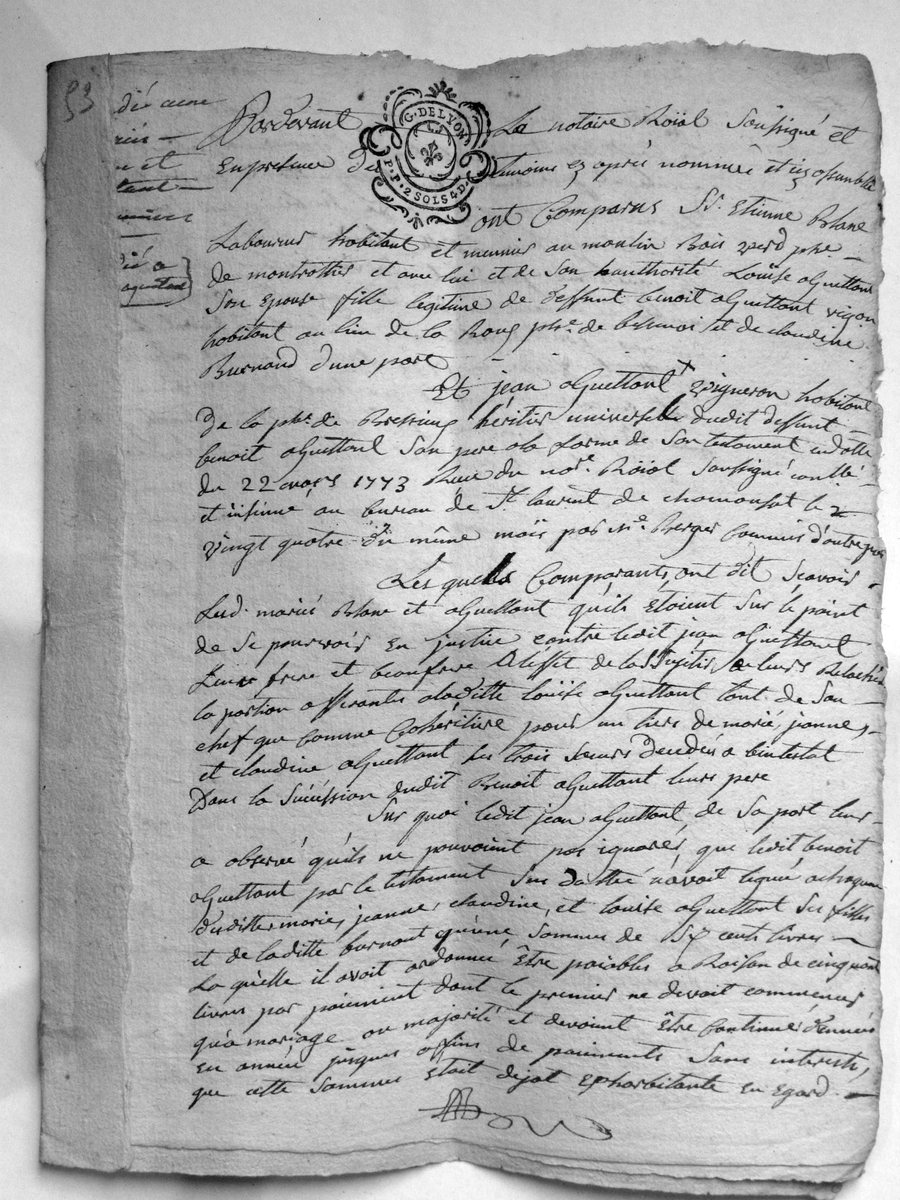 53
Pardevant Le notaire Roïal Soussigné et
En presence de temoins cy après nommés et icy assemblés
G. DE LYON
P. P. 2 SOLS 4 D.
ont Comparus Sr. Etienne Blanc
Laboureur habitant et meunier au moulin Bois verd psse.
de montrottier et avec lui et de Son hauthorité Loüise aGuettant
Son Epouse fille legitime de deffunt benoit aGuettant vigon
habitant au lieu de la psse. de bessenai et de claudine
Burnand d'une part
Et jean aGuettant vigneron habitant
De la psse. de Bressieu héritier universelle dudit deffunt
benoit aGuettant Son pere a la forme de Son testament en datte
du 22 mars 1773 Recu du nore. Roïal Soussigné conllé
et insinué au bureau de St. laurent de chamousset le
vingt quatre du même mois par Me. Berger Commis d'autre part
Les quels Comparants ont dit Scavoir
Lud. mariés Blanc et aGuettant qu'ils Etoient Sur le point
de Se pourvoir En justice contre ledit jean aGuettant
Leur frere et beaufrere a leffet de leurs Relacher
la portion afferante a laditte Loüise aGuettant tant de Son
chef que comme Cohéritiere pour un tiers de marie, jeanne,
et claudine aGuettant Ses trois Seurs Decedées abintestat
Dans la Succession dudit Benoit aGuettant leurs pere
Sur quoi ledit jean aGuettant de Sa part leur
a observé qu'ils ne pouvoient pas ignorer que ledit benoit
aGuettant par le testament Sus datté n'avoit legué a chaqune
desdittes marie, jeanne, claudine, et louise aGuettant Ses filles
et de laditte burnant qu'une Somme de Sept cents livres
La quelle il avoit ordonnée Être paiables a Raison de cinquante
livres par paiement dont le premier ne devoit commencer
qu'a mariage ou majorité et devoient Être Continuer d'année
en année jusques affins de paiements Sans interests,
que cette Sommes Etoit dejat Exhorbitante En Egard